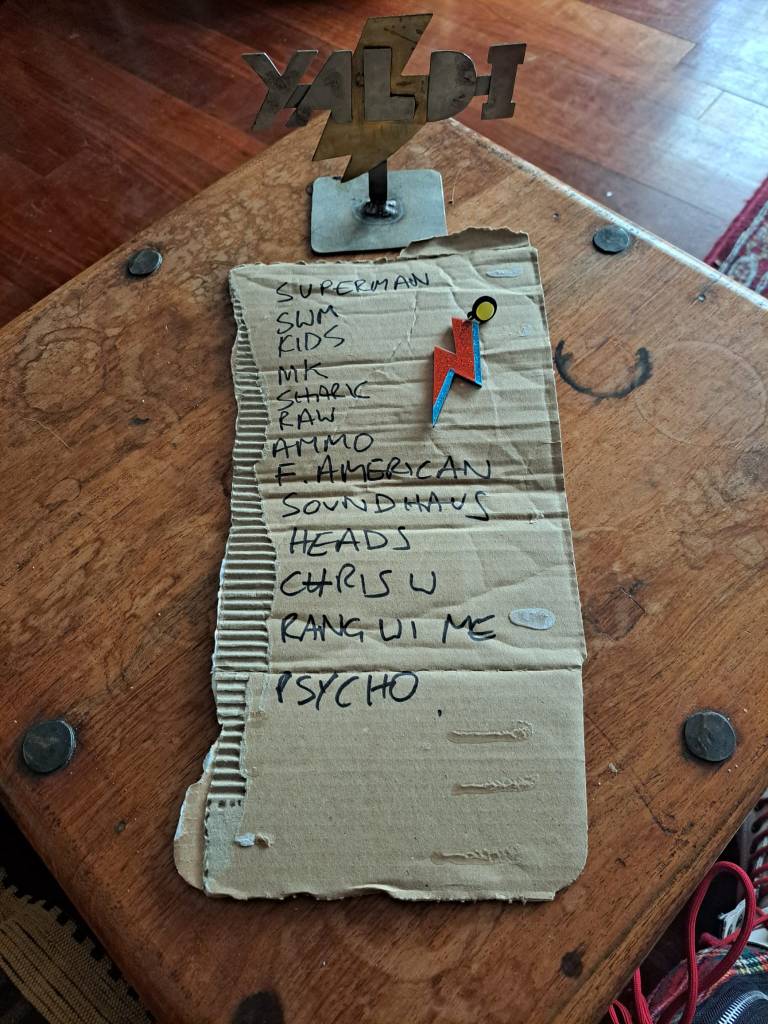 YALDI
SUPERMAN
SWM
KIDS
MK
SHARK
RAW
AMMO
F. AMERICAN
SOUNDHAUS
HEADS
CHRIS W
RANG WI ME
PSYCHO